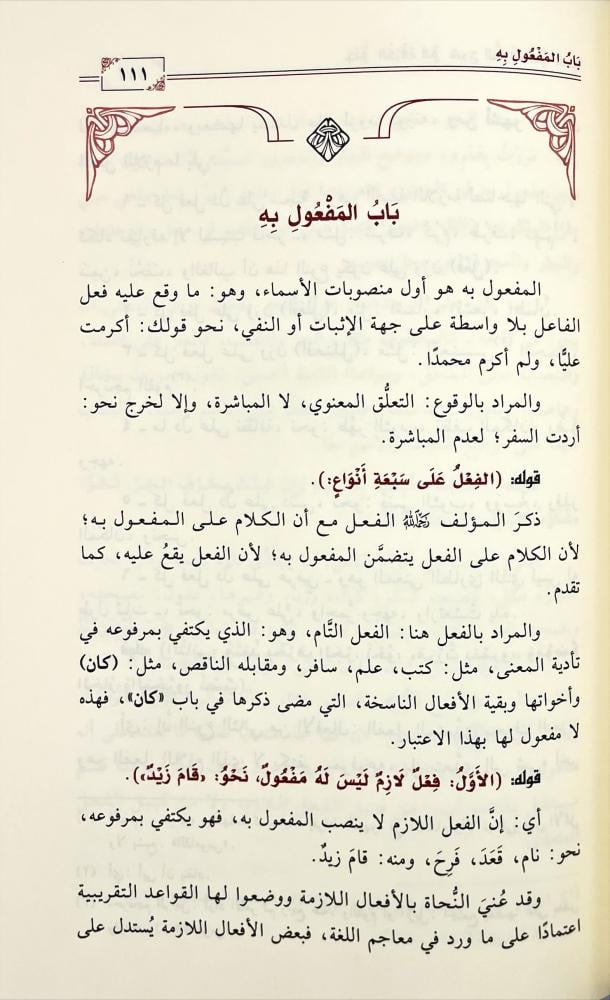 بَابُ المَفْعُولِ بِهِ
١١١
بَابُ المَفْعُولِ بِهِ
المفعول به هو أول منصوبات الأسماء، وهو: ما وقع عليه فعل
الفاعل بلا واسطة على جهة الإثبات أو النفي، نحو قولك: أكرمت
عليًّا، ولم أكرم محمدًا.
والمراد بالوقوع: التعلُّق المعنوي، لا المباشرة، وإلا لخرج نحو:
أردت السفر؛ لعدم المباشرة.
قوله: (الفِعْلُ عَلَى سَبْعَةِ أَنْوَاعٍ:).
ذكرَ المؤلف رَحِمَهُ اللَّهُ الفعل مع أن الكلام على المفعول به؛
لأن الكلام على الفعل يتضمَّن المفعول به؛ لأن الفعل يقعُ عليه، كما
تقدم.
والمراد بالفعل هنا: الفعل التَّام، وهو: الذي يكتفي بمرفوعه في
تأدية المعنى، مثل: كتب، علم، سافر، ومقابله الناقص، مثل: (كان)
وأخواتها وبقية الأفعال الناسخة، التي مضى ذكرها في باب «كان»، فهذه
لا مفعول لها بهذا الاعتبار.
قوله: (الأَوَّلُ: فِعْلٌ لَازِمٌ لَيْسَ لَهُ مَفْعُولٌ، نَحْوُ: «قَامَ زَيْدٌ»).
أي: إنَّ الفعل اللازم لا ينصب المفعول به، فهو يكتفي بمرفوعه،
نحو: نام، قَعَدَ، فَرِحَ، ومنه: قامَ زيدٌ.
وقد عُنيَ النُّحاة بالأفعال اللازمة ووضعوا لها القواعد التقريبية
اعتمادًا على ما ورد في معاجم اللغة، فبعض الأفعال اللازمة يُستدل على